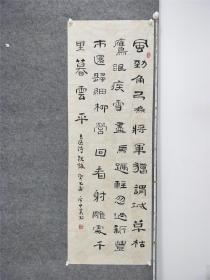 風勁角弓鳴將軍獵渭城草枯
鷹眼疾雪盡馬蹄輕忽過新豐
市還歸細柳營回看射雕處千
里暮雲平
王維詩觀獵